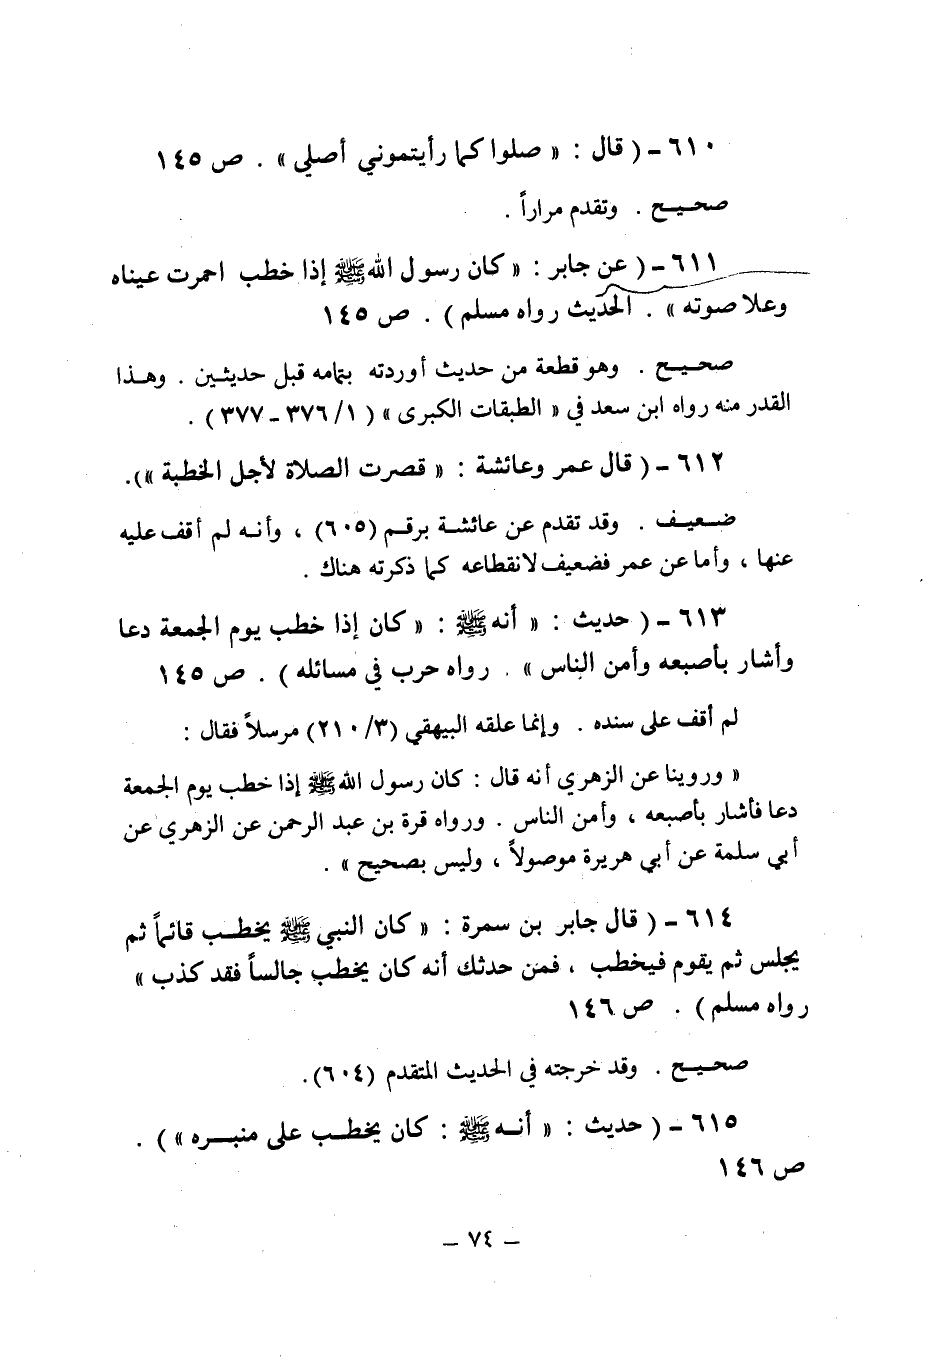 ٦١٠ - ( قال : « صلوا كما رأيتموني أصلي » . ص ١٤٥
صحيح . وتقدم مراراً .
٦١١ - ( عن جابر : « كان رسول الله ﷺ إذا خطب احمرت عيناه
وعلا صوته » . الحديث رواه مسلم ) . ص ١٤٥
صحيح . وهو قطعة من حديث أوردته بتمامه قبل حديثين . وهذا
القدر منه رواه ابن سعد في « الطبقات الكبرى » ( ١/ ٣٧٦ - ٣٧٧ ) .
٦١٢ - ( قال عمر وعائشة : « قصرت الصلاة لأجل الخطبة » ).
ضعيف . وقد تقدم عن عائشة برقم (٦٠٥) ، وأنه لم أقف عليه
عنها ، وأما عن عمر فضعيف لانقطاعه كما ذكرته هناك .
٦١٣ - ( حديث : « أنه ﷺ : « كان إذا خطب يوم الجمعة دعا
وأشار بأصبعه وأمن الناس » . رواه حرب في مسائله ) . ص ١٤٥
لم أقف على سنده . وإنما علقه البيهقي (٣/ ٢١٠) مرسلاً فقال :
« وروينا عن الزهري أنه قال : كان رسول الله ﷺ إذا خطب يوم الجمعة
دعا فأشار بأصبعه ، وأمن الناس . ورواه قرة بن عبد الرحمن عن الزهري عن
أبي سلمة عن أبي هريرة موصولاً ، وليس بصحيح » .
٦١٤ - ( قال جابر بن سمرة : « كان النبي ﷺ يخطب قائماً ثم
يجلس ثم يقوم فيخطب ، فمن حدثك أنه كان يخطب جالساً فقد كذب »
رواه مسلم ) . ص ١٤٦
صحيح . وقد خرجته في الحديث المتقدم (٦٠٤).
٦١٥ - ( حديث : « أنه ﷺ : كان يخطب على منبره » ) .
ص ١٤٦
- ٧٤ -